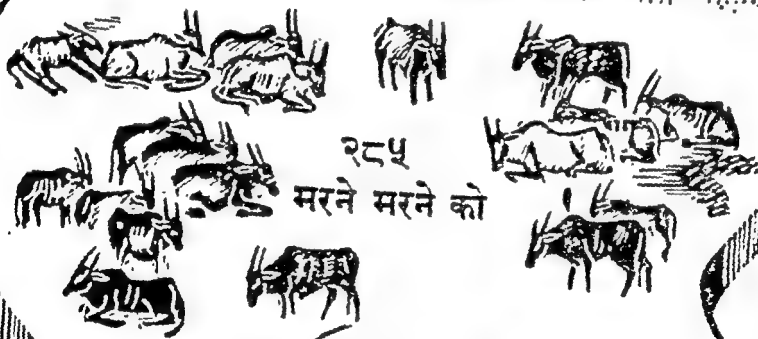 २८५
मरने मरने को